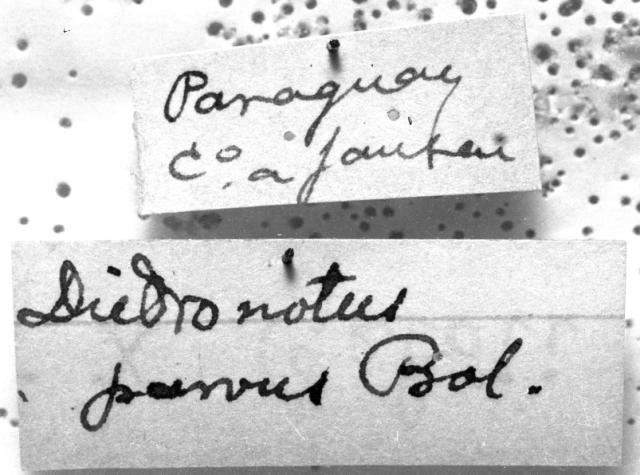 Paraguay
Co. a
Diedronotus
parvus Bol.